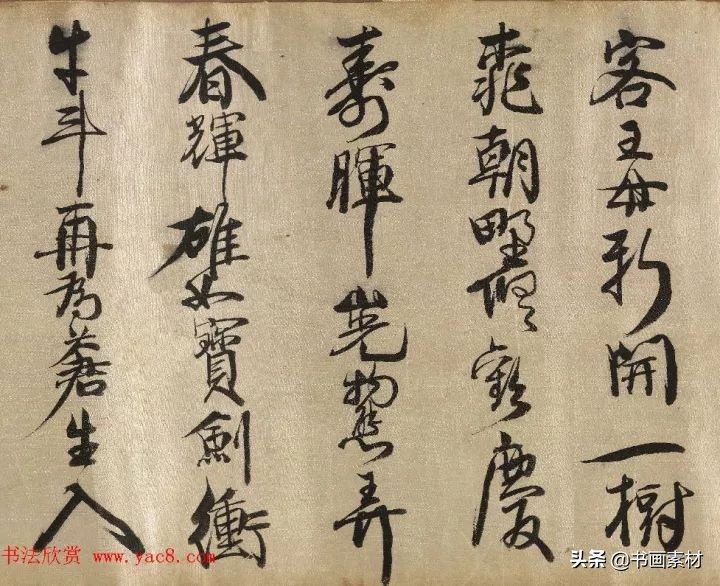 客王母新開一樹
桃朝野歡慶
壽暉山光物態弄
春輝雄如寶劍衝
牛斗再為蒼生入
书法欣赏 www.yac8.com
头条 @书画素材